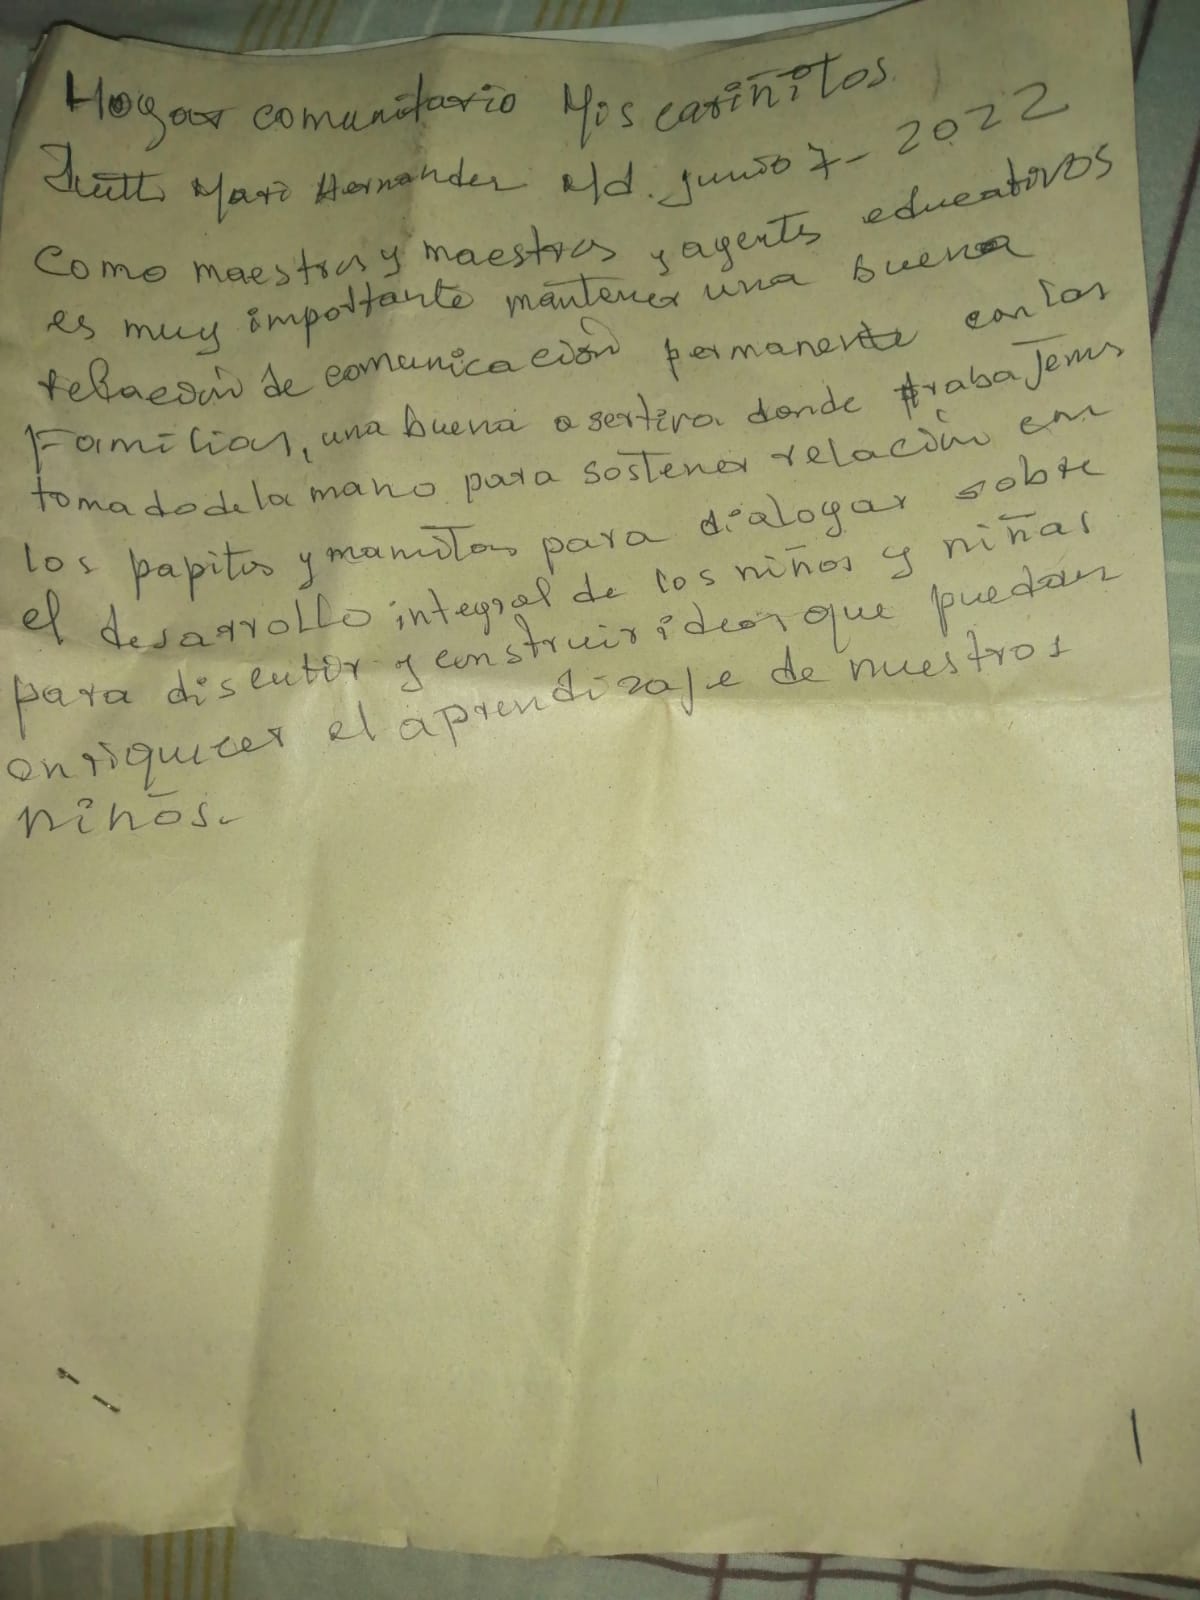 Hogar comunitario Mis cariñitos
Mari Hernandez M/d. junio 7-2022
Como maestras y maestros y agentes educativos
es muy importante mantener una buena
relación de comunicación permanente con las
Familias, una buena asertiva donde trabajemos
tomado de la mano para sostener relación con
los papitos y mamitas para dialogar sobre
el desarrollo integral de los niños y niñas
para discutir y construir ideas que puedan
enriquecer el aprendizaje de nuestros
niños.